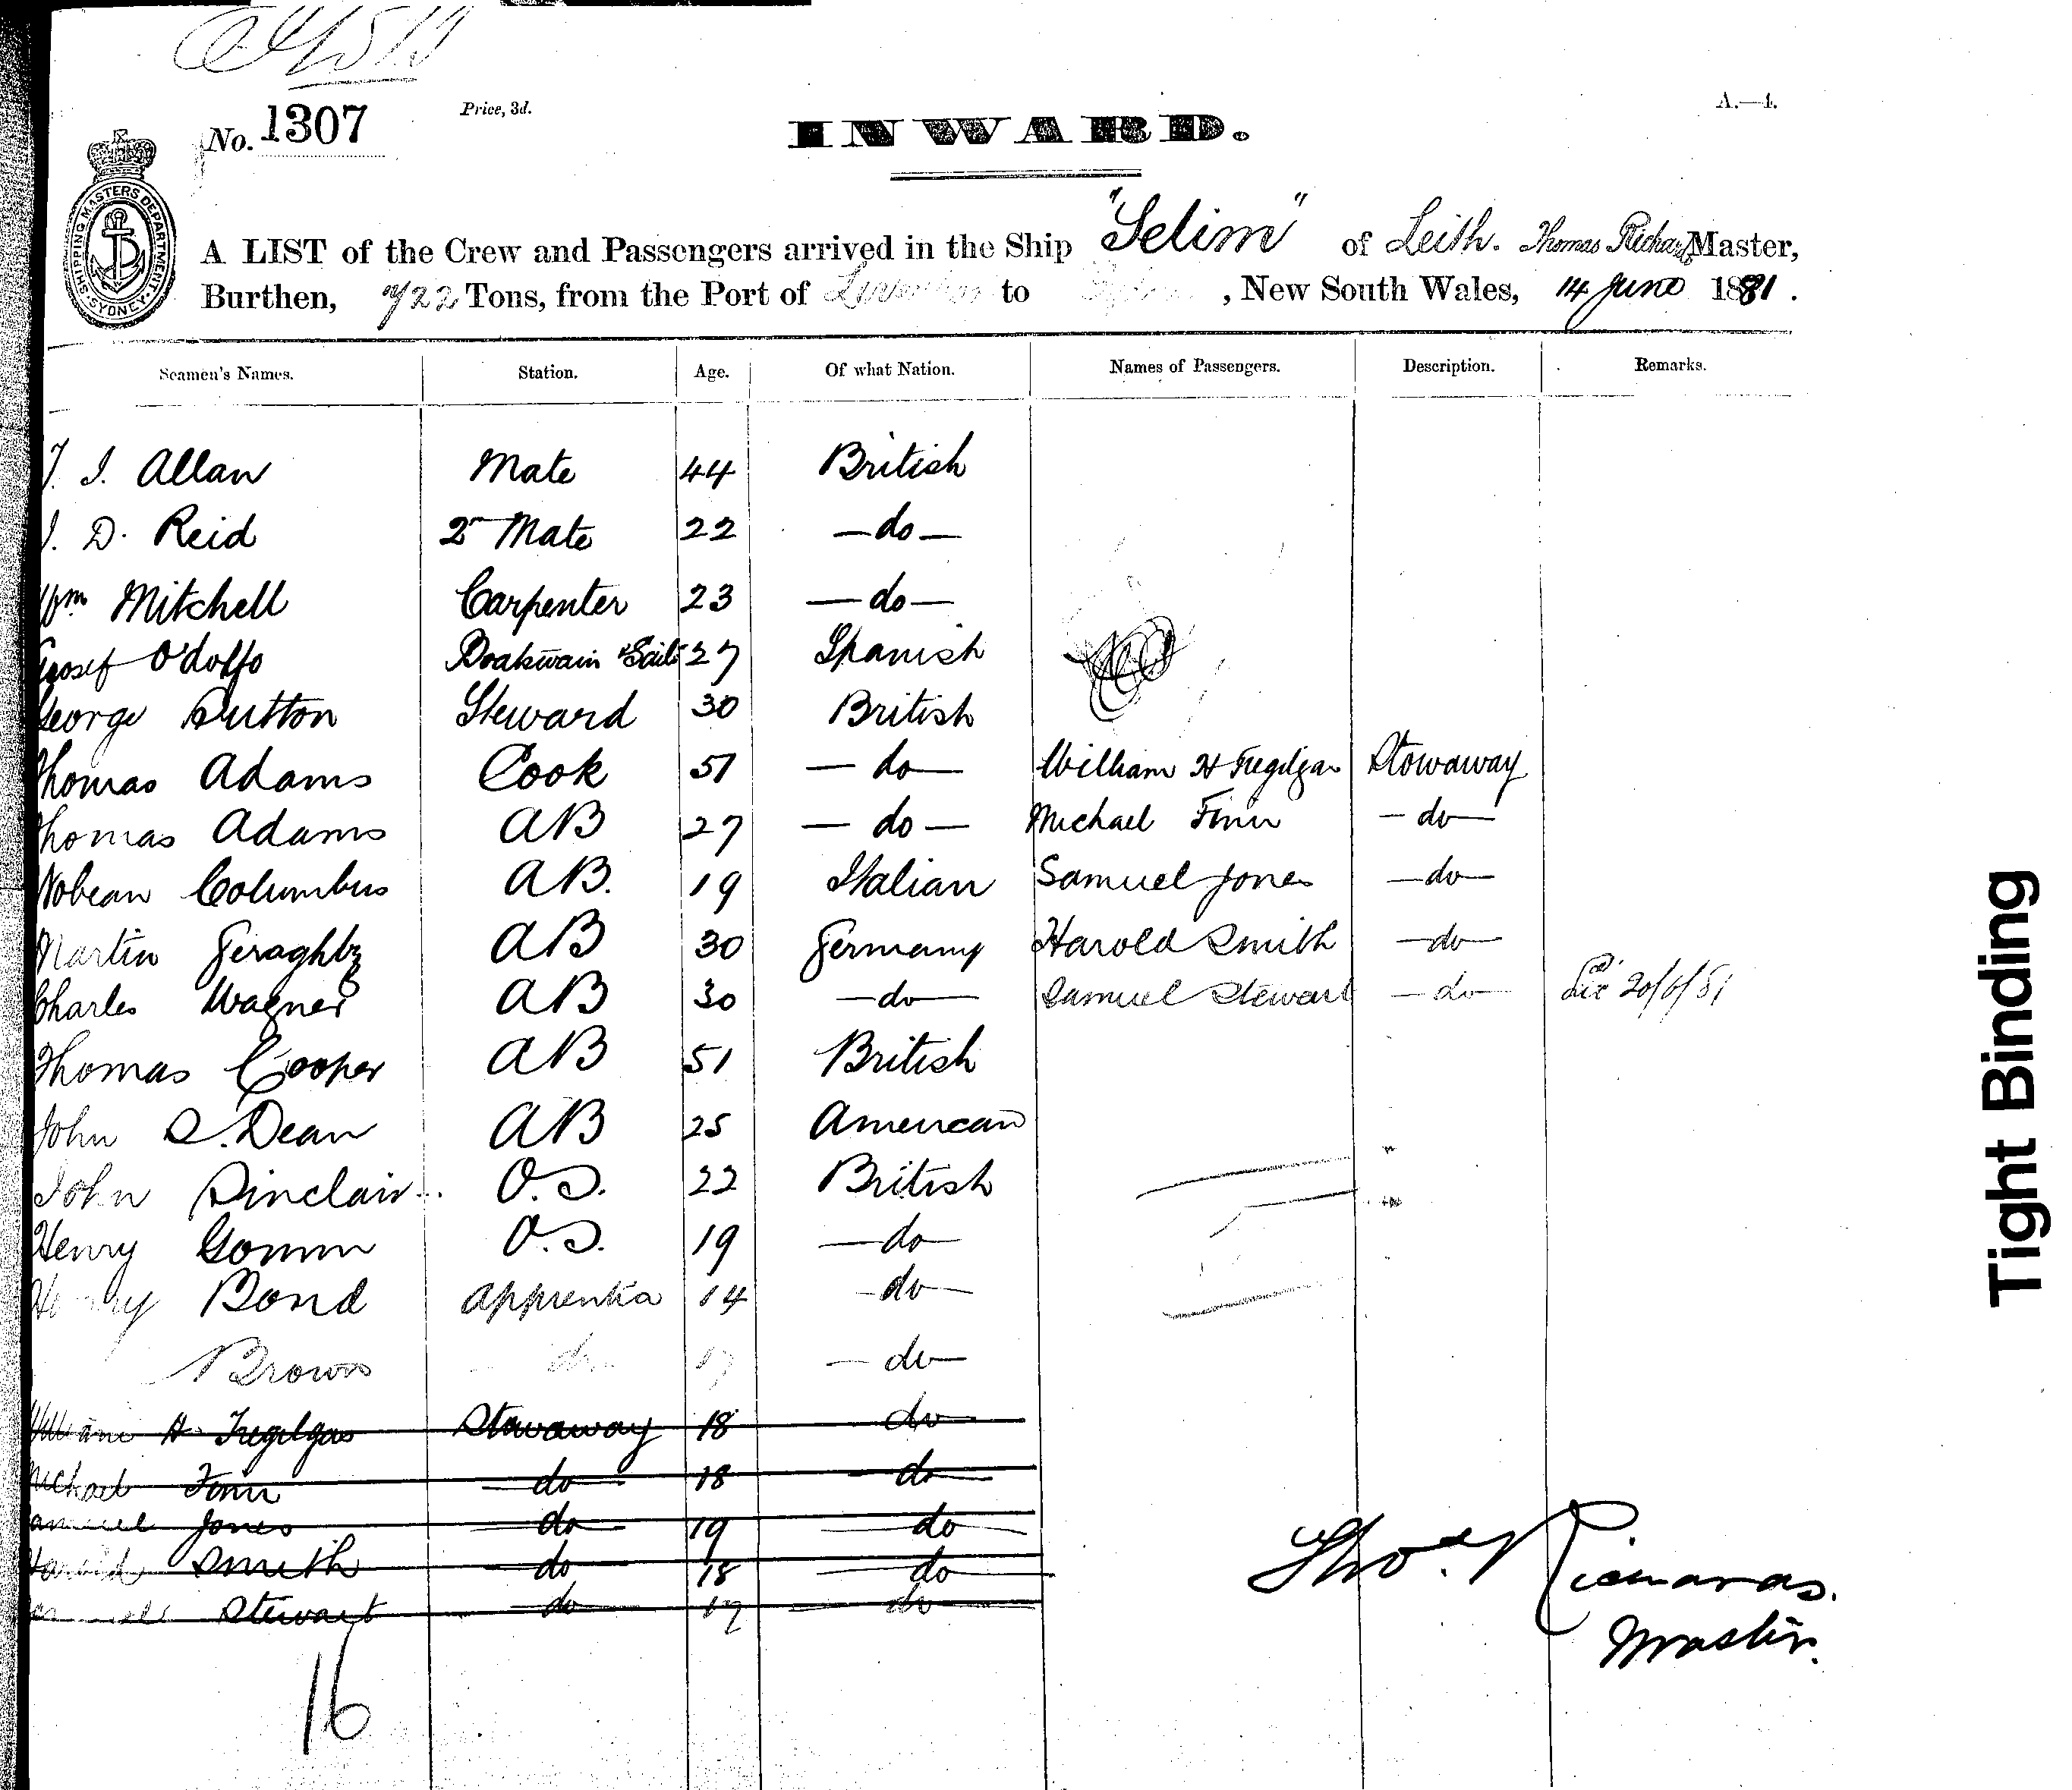 No. 1307
Price, 3d.
INWARD.
A.—4.
SHIPPING MASTERS DEPARTMENT SYDNEY
A LIST of the Crew and Passengers arrived in the Ship "Selim" of Leith. Thomas Richards Master,
Burthen, 722 Tons, from the Port of to , New South Wales, 14 June 1881.
Seamen's Names. Station. Age. Of what Nation. Names of Passengers. Description. Remarks.
J. I. Allan Mate 44 British
J. D. Reid 2nd Mate 22 — do —
Wm Mitchell Carpenter 23 — do —
O'dolfo Boatswain & Sails 27 Spanish
George Sutton Steward 30 British
Thomas Adams Cook 51 — do — William H Tregilgas Stowaway
Thomas Adams AB 27 — do — Michael Finn — do —
Columbus AB. 19 Italian Samuel Jones — do —
Martin Geraghty AB 30 Germany Harold Smith — do —
Charles Wagner AB 30 — do — Samuel Stewart — do — 20/6/81
Thomas Cooper AB 51 British
John S. Dean AB 25 American
John Sinclair O.S. 22 British
Henry Gomm O.S. 19 — do —
Henry Bond Apprentice 14 — do —
Brown do 17 — do —
William H Tregilgas Stowaway 18 do
Michael Finn do 18 do
Samuel Jones do 19 do
Harold Smith do 18 do
Samuel Stewart do 17 do
Thos. Richards.
Master.
16
Tight Binding